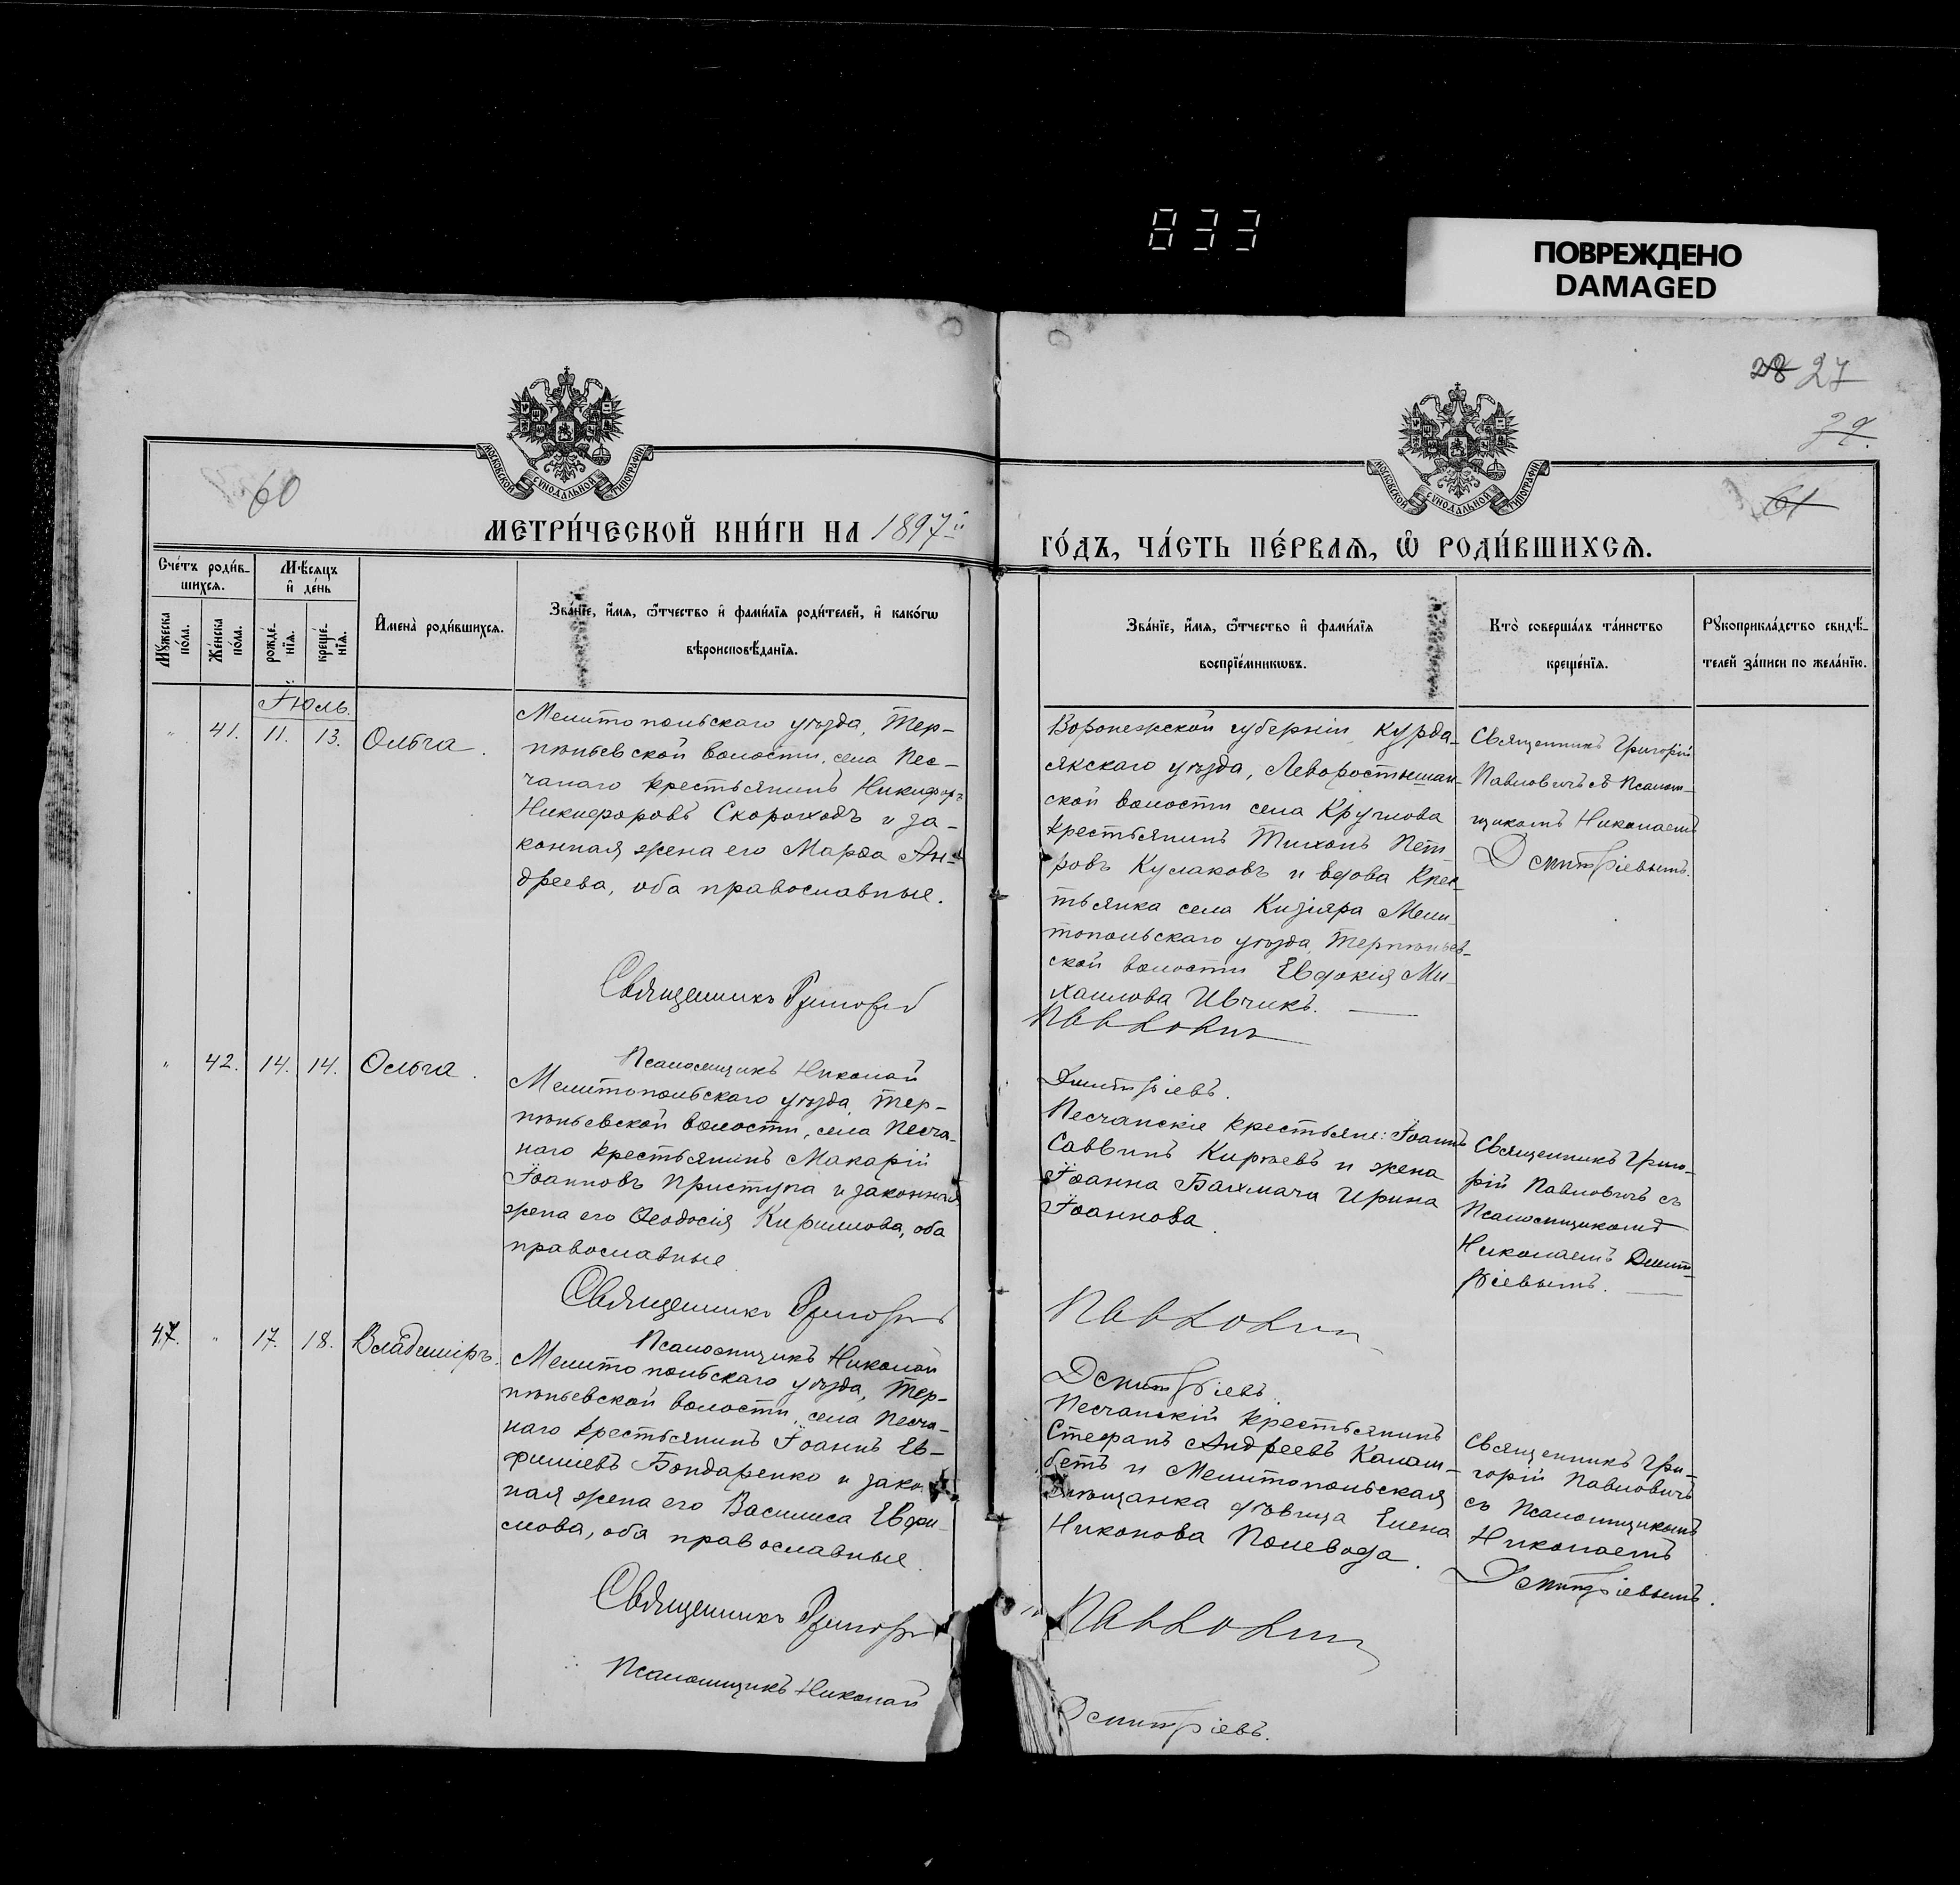 833
ПОВРЕЖДЕНО
DAMAGED
28 27
60
61
МОСКОВСКОЙ СѴНОДАЛЬНОЙ ТИПОГРАФІИ
МОСКОВСКОЙ СѴНОДАЛЬНОЙ ТИПОГРАФІИ
МЕТРИ́ЧЕСКОЙ КНИ́ГИ НА 1897й
ГО́ДЪ, ЧА́СТЬ ПЕ́РВАѦ, Ѽ РОДИ́ВШИХСѦ.
Сче́тъ роди́в-
шихсѧ.
Мѣ́сѧцъ
и҆ де́нь
Мꙋ́жеска
по́ла.
Же́нска
по́ла.
рожде́-
нїѧ.
креще́-
нїѧ.
И҆мена̀ роди́вшихсѧ.
Зва́нїе, и҆́мѧ, ѻ҆́тчество и҆ фами́лїѧ роди́телей, и҆ како́гѡ
вѣроисповѣ́данїѧ.
Зва́нїе, и҆́мѧ, ѻ҆́тчество и҆ фами́лїѧ
воспрїе́мникѡвъ.
Кто̀ соверша́лъ та́инство
креще́нїѧ.
Рꙋкоприкла́дство свидѣ́-
телей за́писи по жела́нїю.
Іюль.
" 41. 11. 13. Ольга.
Мелитопольскаго уѣзда, Тер-
пѣньевской волости, села Пес-
чанаго крестьянинъ Никифоръ
Никифоровъ Скороходъ и за-
конная жена его Марѳа Ан-
дреева, оба православные.
Священникъ Григорій
Псаломщикъ Николай
Воронежской губерніи,
уѣзда,
ской волости села Круглова
крестьянинъ Тихонъ Пет
ровъ Кулаковъ и вдова Крес-
тьянка села Кизіяра Мели
топольскаго уѣзда, Терпѣньев-
ской волости Евдокія Ми-
хаилова Ивчикъ.
Павловичъ
Дмитріевъ.
Священникъ Григорій
Павловичъ съ Псалом-
щикомъ Николаемъ
Дмитріевымъ.
" 42. 14. 14. Ольга.
Мелитопольскаго уѣзда, Тер-
пѣньевской волости, села Песча-
наго крестьянинъ Макарій
Іоанновъ Приступа и законная
жена его Ѳеодосія Кириллова, оба
православные
Священникъ Григорій
Псаломщикъ Николай
Песчанскіе крестьяне: Іоаннъ
Саввинъ Киріевъ и жена
Іоанна Бахмача Ирина
Іоаннова.
Павловичъ
Дмитріевъ.
Священникъ Григо-
рій Павловичъ съ
Псаломщикомъ
Николаемъ Дмит-
ріевымъ.
47. " 17. 18. Владиміръ.
Мелитопольскаго уѣзда, Тер-
пѣньевской волости, села Песча-
наго крестьянинъ Іоаннъ Ев-
фиміевъ Бондаренко и закон
ная жена его Василиса Евфи-
мова, оба православные.
Священникъ Григорій
Псаломщикъ Николай
Песчанскій крестьянинъ
Стефанъ Андреевъ Калаш-
бетъ и Мелитопольская
мѣщанка дѣвица Елена
Никонова Полевода.
Павловичъ
Дмитріевъ.
Священникъ Гри-
горій Павловичъ
съ Псаломщикомъ
Николаемъ
Дмитріевымъ.